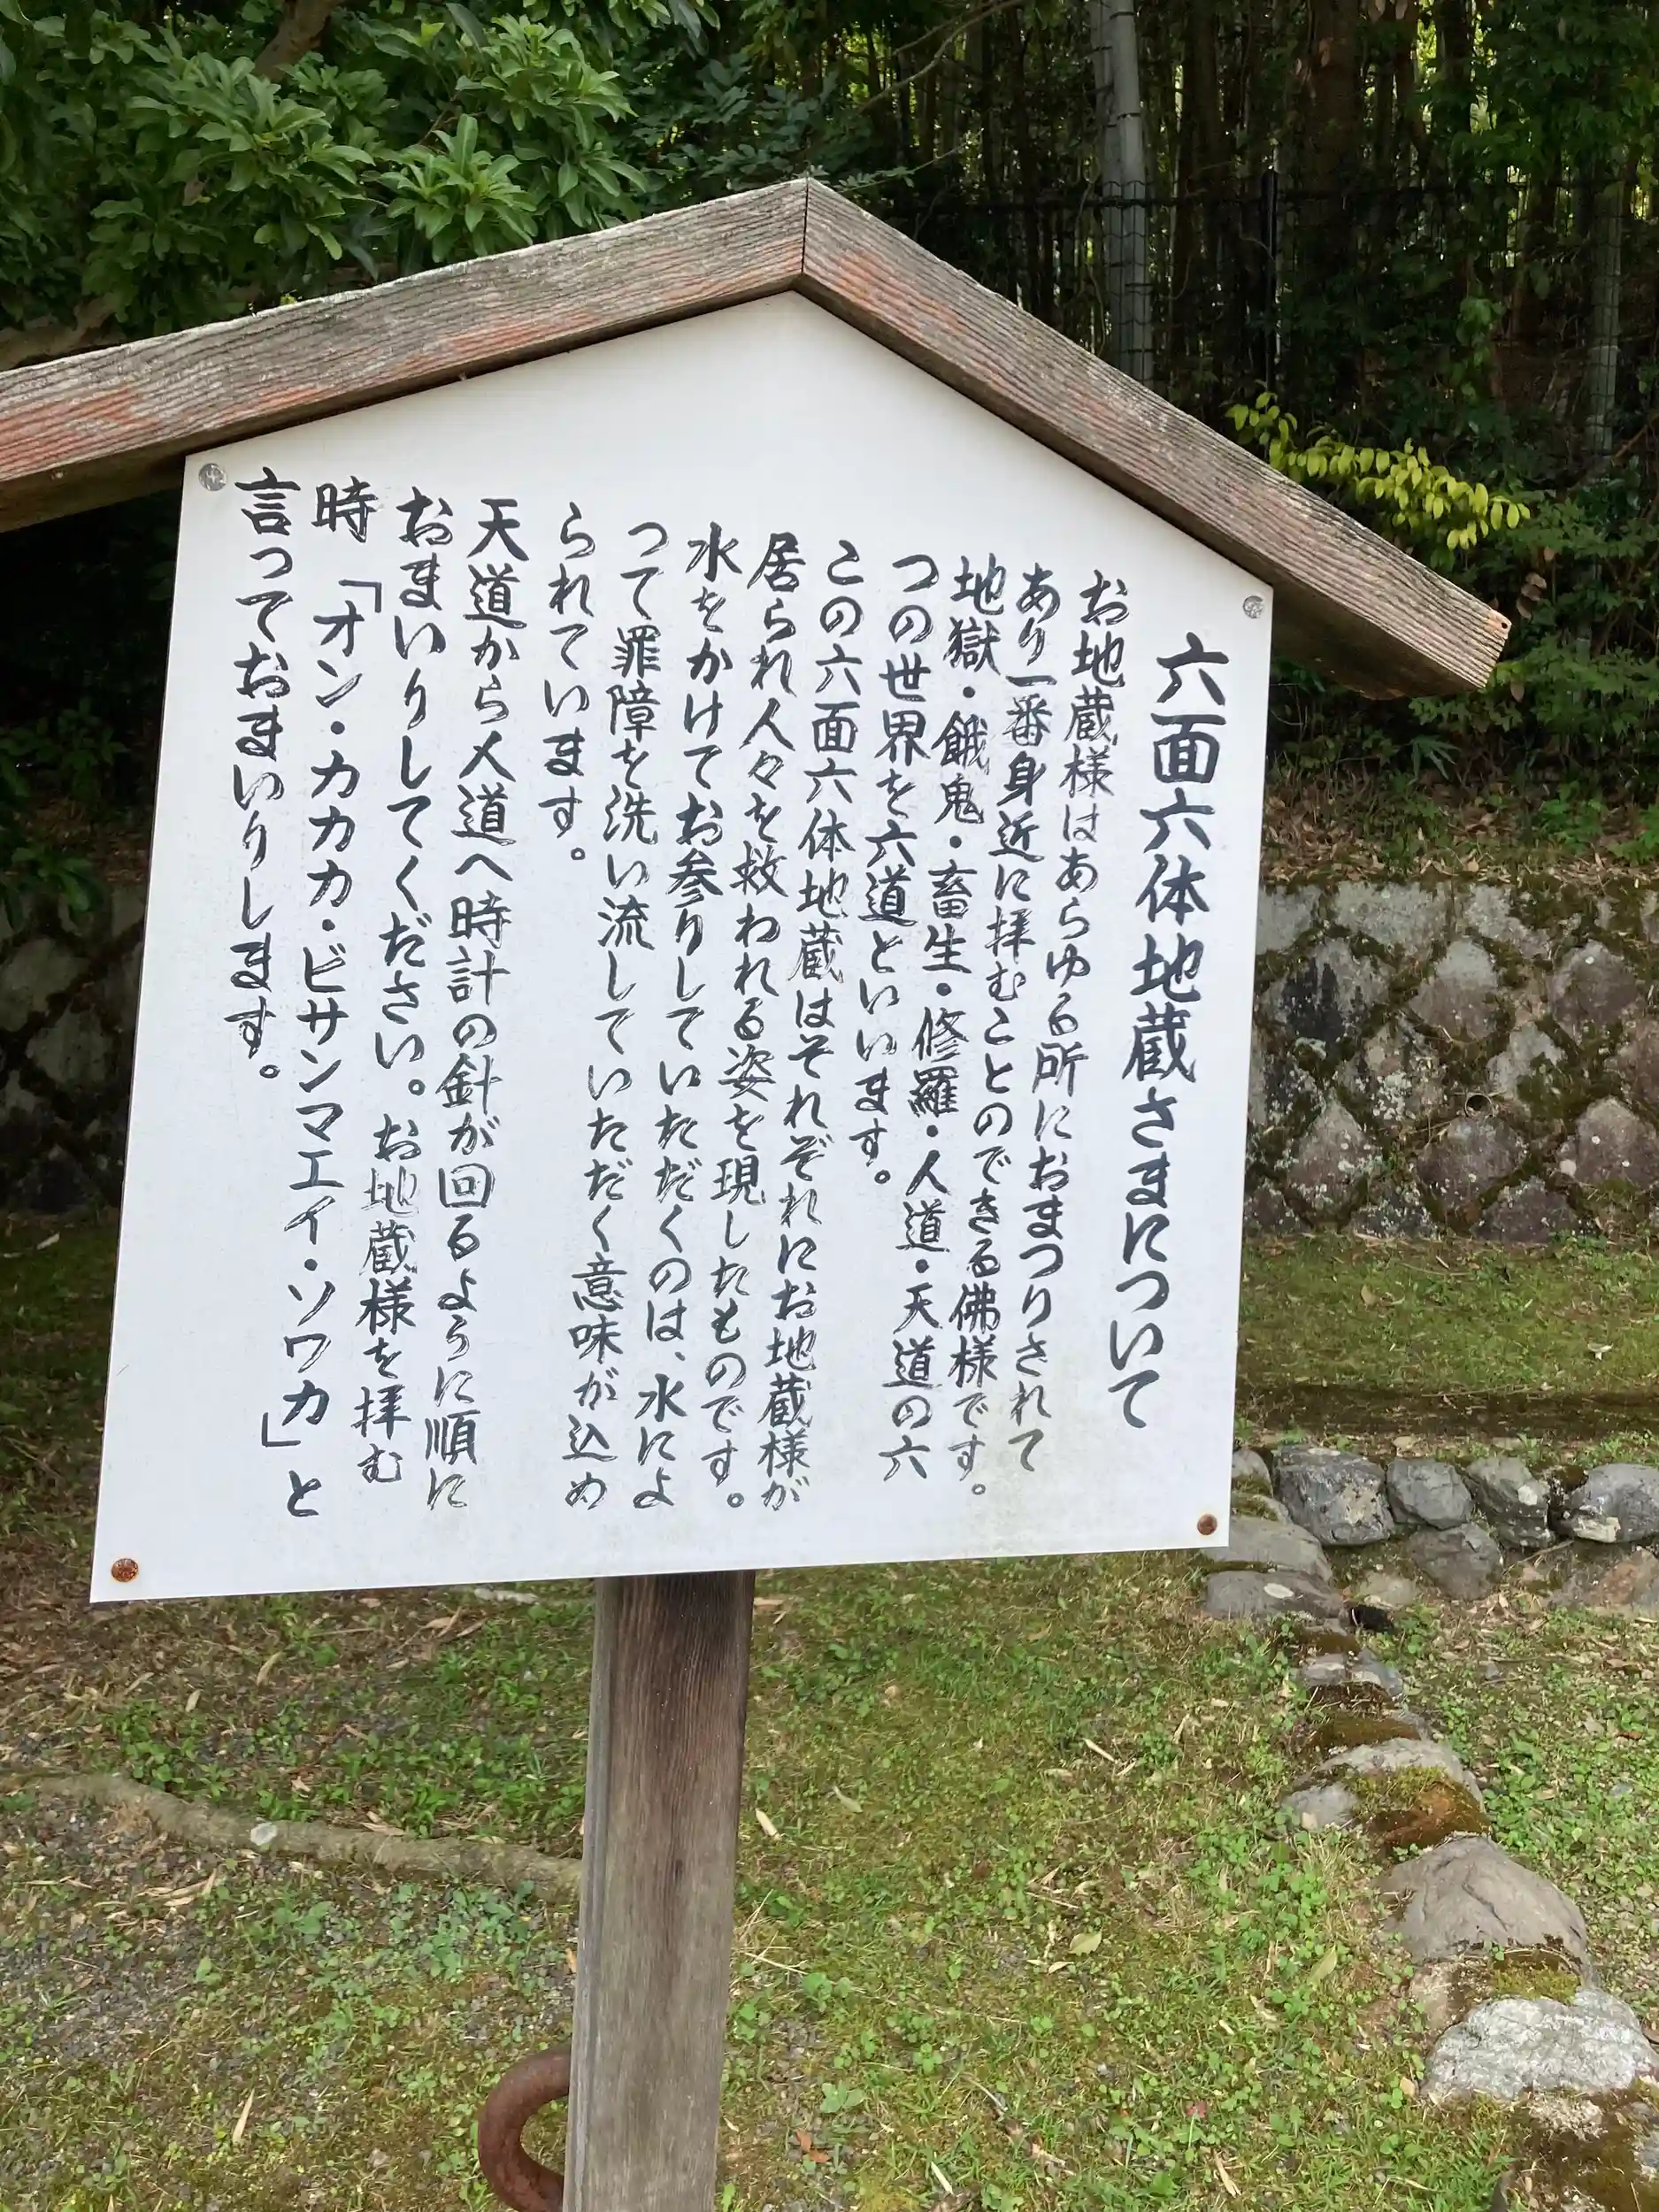 六面六体地蔵さまについて
お地蔵様はあらゆる所におまつりされて
あり一番身近に拝むことのできる佛様です。
地獄・餓鬼・畜生・修羅・人道・天道の六
つの世界を六道といいます。
この六面六体地蔵はそれぞれにお地蔵様が
居られ人々を救われる姿を現したものです。
水をかけてお参りしていただくのは、水によ
って罪障を洗い流していただく意味が込め
られています。
天道から人道へ時計の針が回るように順に
おまいりしてください。お地蔵様を拝む
時「オン・カカカ・ビサンマエイ・ソワカ」と
言っておまいりします。